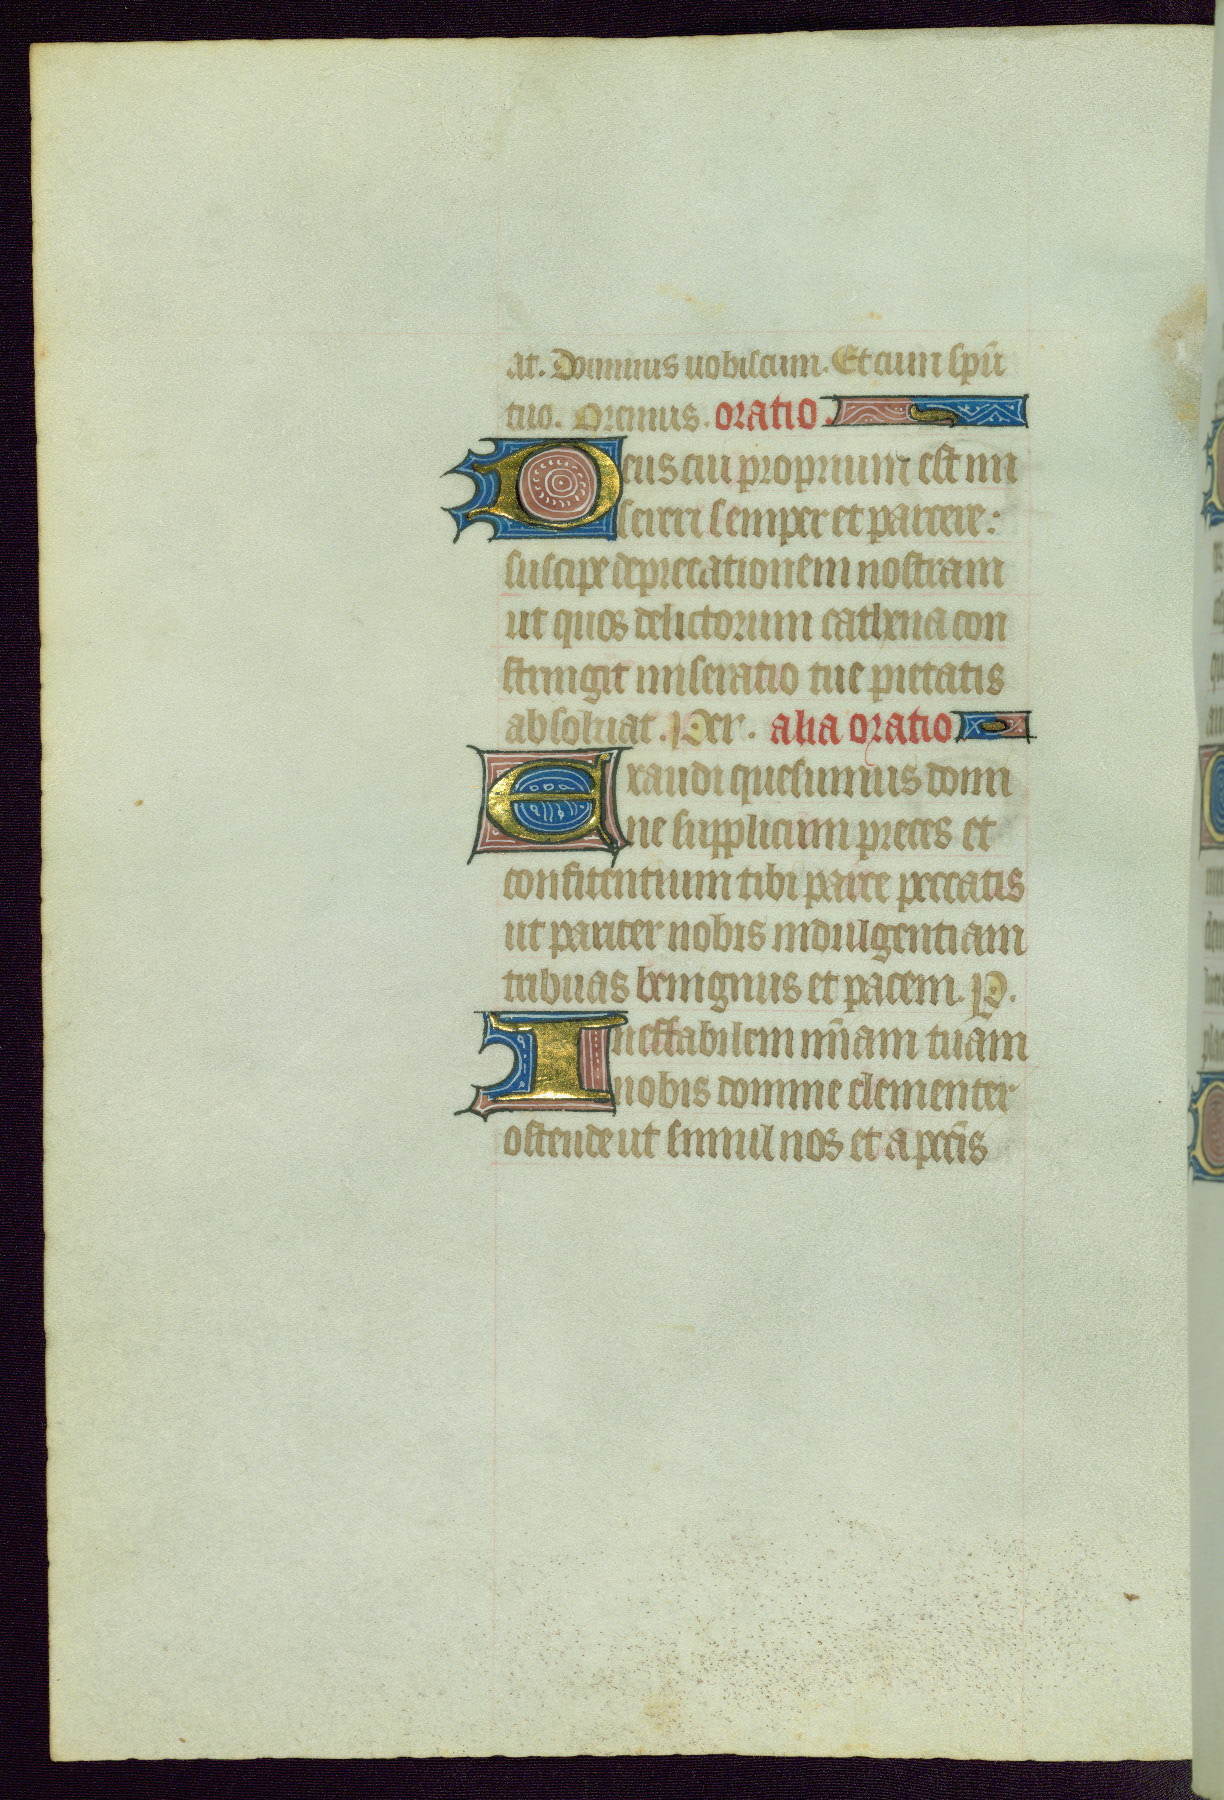 at. Dominus uobiscum. Et cum spū
tuo. Oremus. oratio.
Deus cui proprium est mi
sereri semper et parcere:
suscipe deprecationem nostram
ut quos delictorum cathena con
stringit miseratio tue pietatis
absoluat. Per. alia oratio
Exaudi quesumus domi
ne supplicum preces et
confitentium tibi parce peccatis
ut pariter nobis indulgentiam
tribuas benignus et pacem. P.
Ineffabilem mīam tuam
nobis domine clementer
ostende ut simul nos et a pctīs